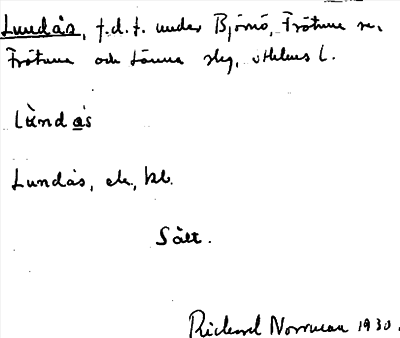 Lundås, f.d.t. under Björnö, Frötuna sn,
Frötuna och Länna skg, Sthlms l.
Lùndås
Lundås, ek., bl.
Sålt.
Richard Norrman 1930.